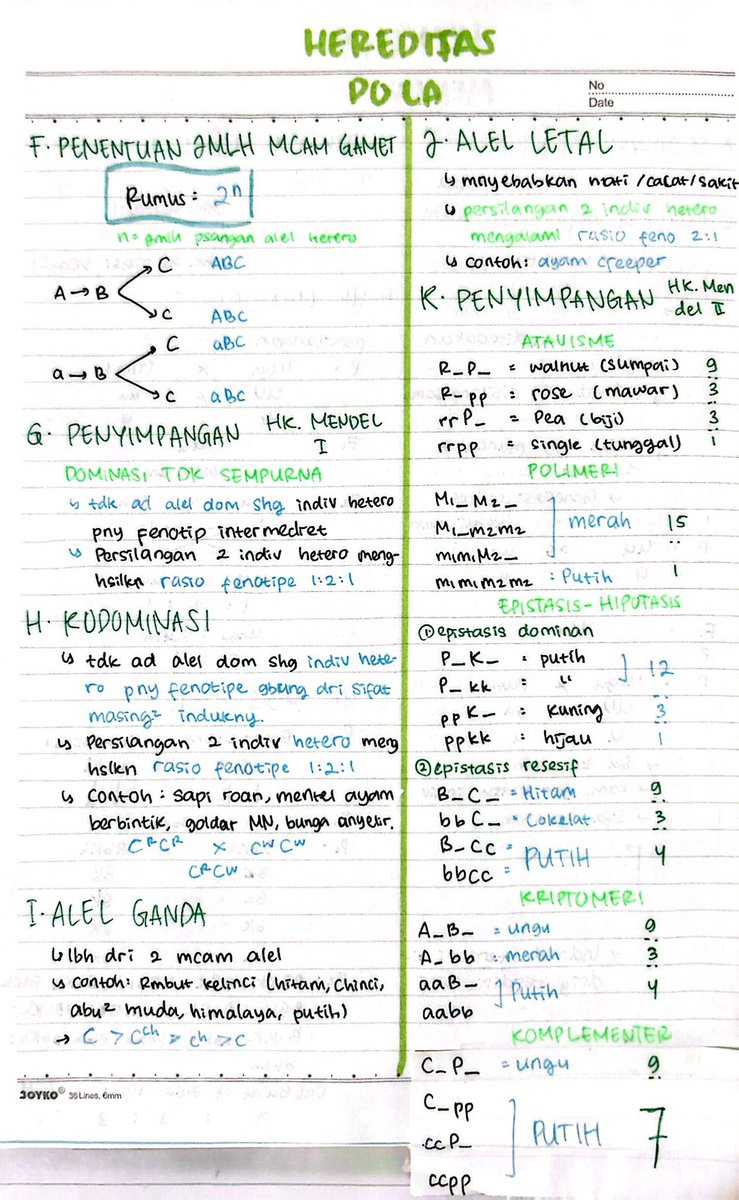 HEREDITAS
POLA
No
Date
F. PENENTUAN JMLH MCAM GAMET
Rumus: 2ⁿ
n = jmlh psangan alel hetero
C ABC
A → B
C ABC
C aBC
a → B
C aBC
G. PENYIMPANGAN HK. MENDEL I
DOMINASI TDK SEMPURNA
↳ tdk ad alel dom shg indiv hetero
pny fenotip intermedret
↳ Persilangan 2 indiv hetero meng-
hsilkn rasio fenotipe 1:2:1
H. KODOMINASI
↳ tdk ad alel dom shg indiv hete-
ro pny fenotipe gbung dri sifat
masing² indukny.
↳ Persilangan 2 indiv hetero meng
hslkn rasio fenotipe 1:2:1
↳ Contoh: sapi roan, mentel ayam
berbintik, goldar MN, bunga anyelir.
CᴿCᴿ × CᵂCᵂ
CᴿCᵂ
I. ALEL GANDA
↳ lbh dri 2 mcam alel
↳ contoh: Rmbut kelinci (hitam, Chinci,
abu² muda, himalaya, putih)
→ C > Cᶜʰ > cʰ > c
JOYKO® 36 Lines, 6mm
J. ALEL LETAL
↳ mnyebabkan mati/cacat/sakit
↳ persilangan 2 indiv hetero
mengalami rasio feno 2:1
↳ contoh: ayam creeper
K. PENYIMPANGAN HK. Men
del II
ATAVISME
R_P_ = walnut (sumpai) 9
R-pp = rose (mawar) 3
rrP_ = Pea (biji) 3
rrpp = single (tunggal) 1
POLIMERI
M1_M2_
M1_m2m2 merah 15
m1m1M2_
m1m1m2m2 : Putih 1
EPISTASIS-HIPOTASIS
① epistasis dominan
P_K_ : putih
P_kk = " 12
ppK_ : kuning 3
ppkk : hijau 1
② epistasis resesif
B_C_ = Hitam 9
bbC_ = Cokelat 3
B_Cc =
PUTIH 4
bbcc =
KRIPTOMERI
A_B_ = ungu 9
A_bb = merah 3
aaB_
Putih 4
aabb
KOMPLEMENTER
C_P_ = ungu 9
C_pp
ccP_ PUTIH 7
ccpp